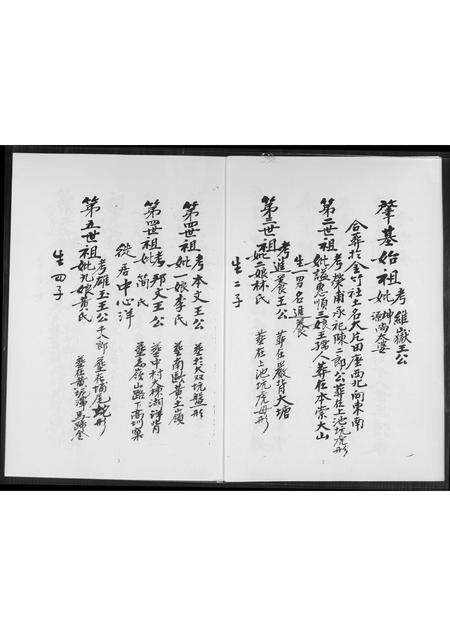 肇基始祖考維嶽王公
妣坤源尚太婆
合葬於金竹社土名大片田座西北向東南
第二世祖考榮甫承祀陳二郎公葬在上池坑虎形
妣謚惠順三娘王孺人葬在本崇大山
生一男名進養
第三世祖考進養王公 葬在嚴背大塘
妣二娘林氏 葬在上池坑虎母形
生二子
第四世祖考本文王公 葬於大双坑盤形
妣一娘李氏 葬南歐黃土嶺
第四世祖考邦文王公 葬中村大棟湖洋背
妣簡氏 葬馬嶺山路丁高圳窠
徙居中心洋
第五世祖考碓玉王公千八郎 葬在塲尾蛇形
妣九娘黃氏 葬在黃坑潭馬蹄金
生四子